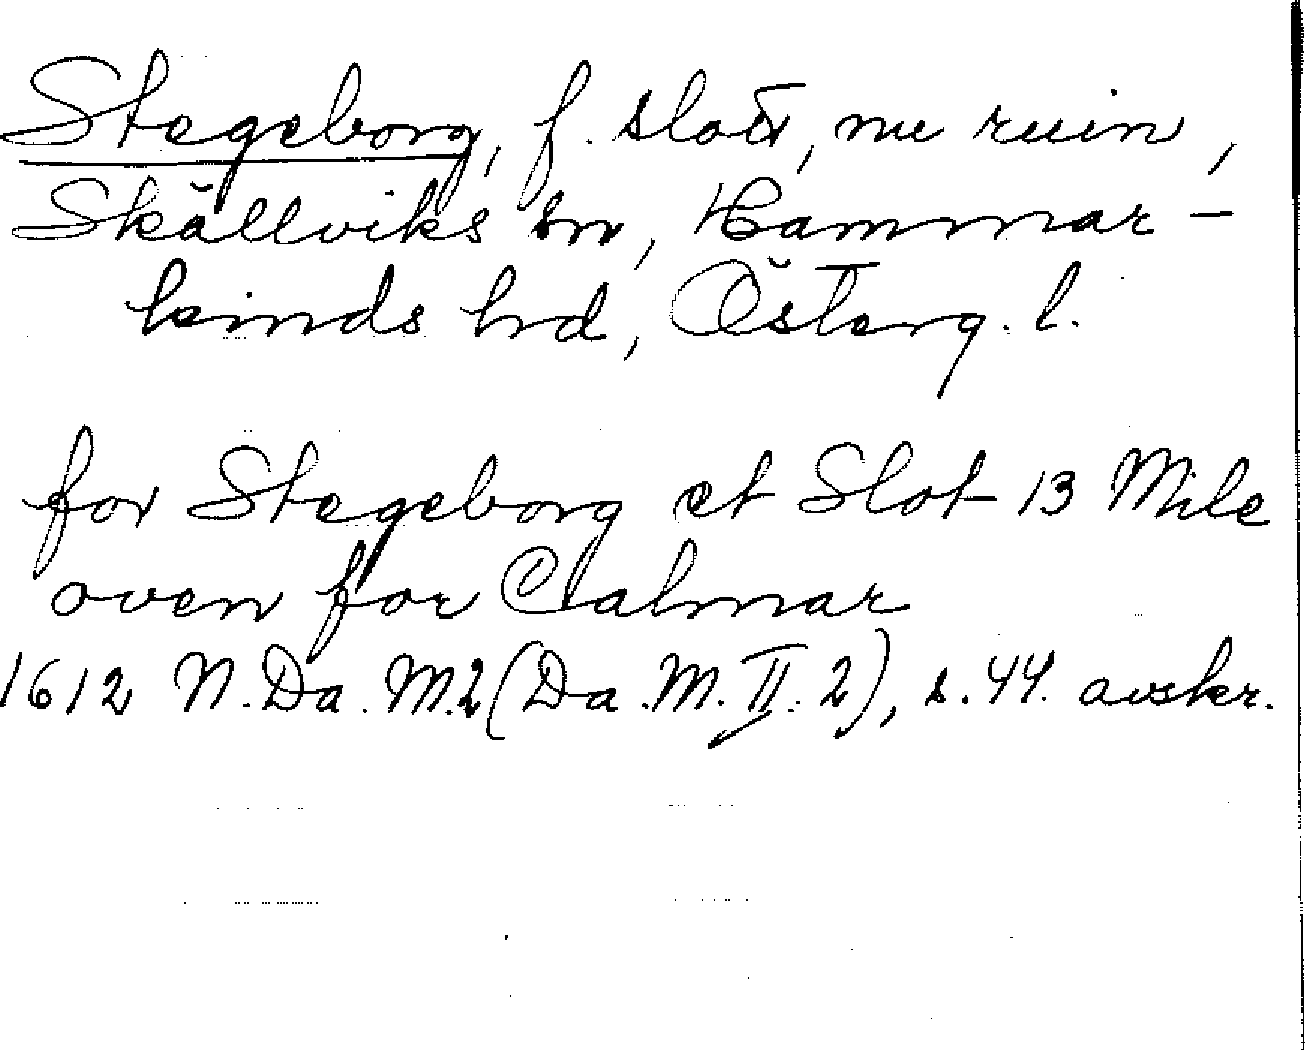 Stegeborg, f. slott, nu ruin,
Skällviks sn, Hammar-
kinds hd, Österg. l.
for Stegeborg et Slot 13 Mile
oven for Calmar
1612 N. Da. M. 2 (Da. M. II. 2), s. 44. avskr.